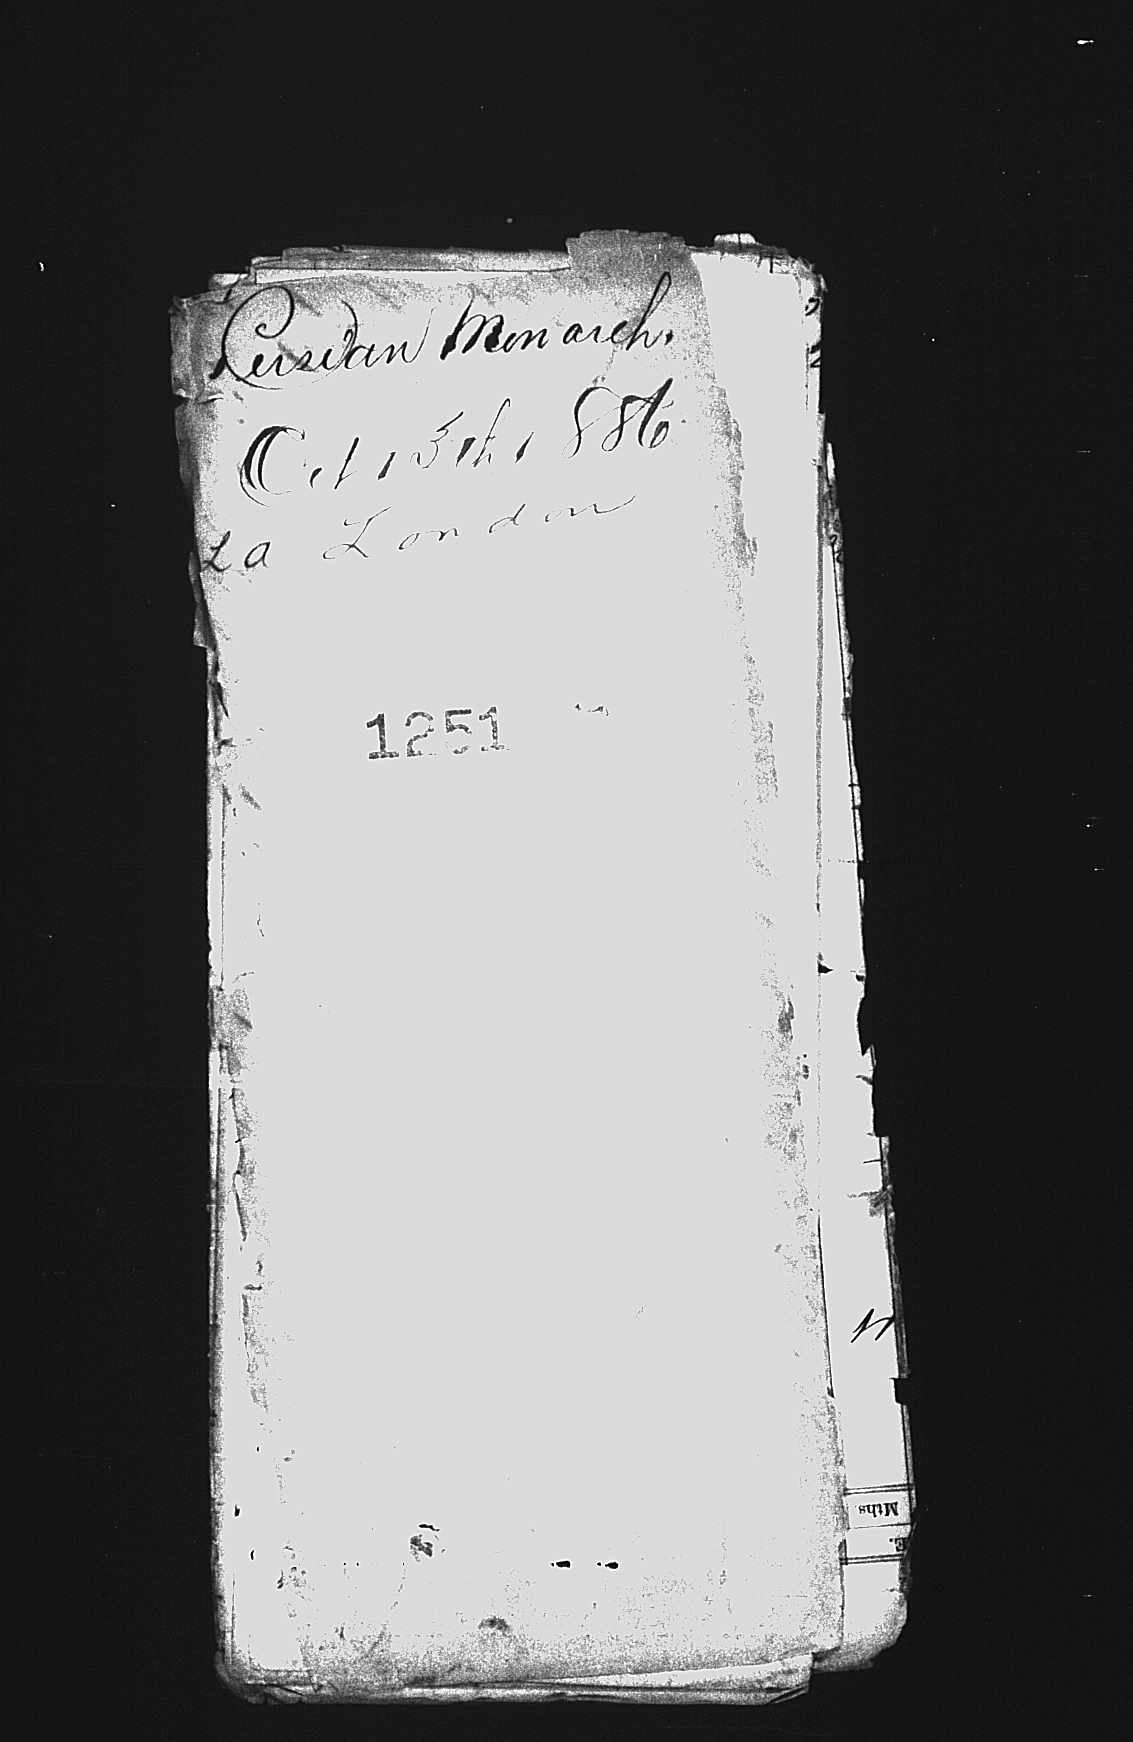 Persian Monarch.
Oct 13th, 1886
La London
1251
Mths.
E.